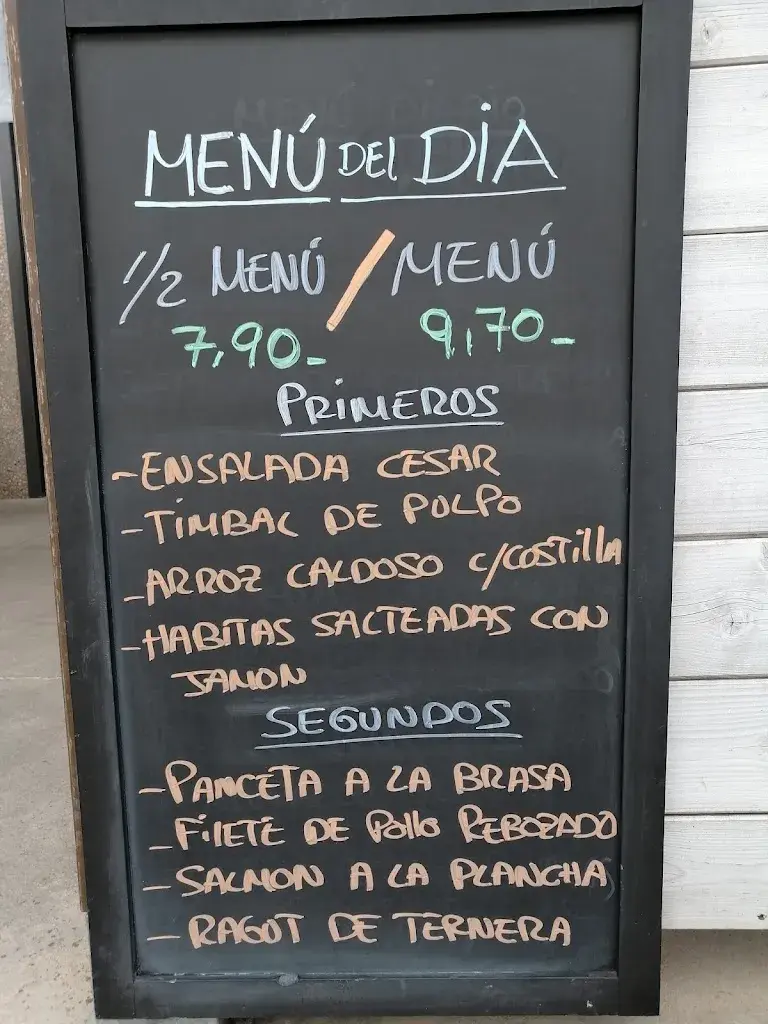 MENÚ DEL DIA
1/2 MENÚ / MENÚ
7,90.- 9,70.-
PRIMEROS
- ENSALADA CESAR
- TIMBAL DE PULPO
- ARROZ CALDOSO C/COSTILLA
- HABITAS SALTEADAS CON
JAMON
SEGUNDOS
- PANCETA A LA BRASA
- FILETE DE POLLO REBOZADO
- SALMON A LA PLANCHA
- RAGUT DE TERNERA